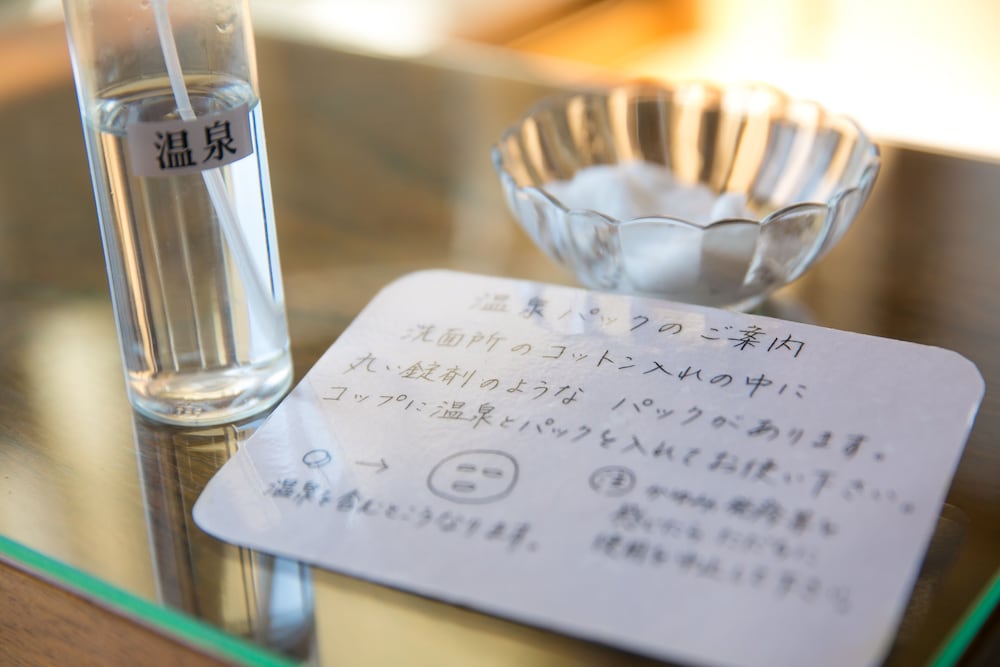 温泉
温泉パックのご案内
洗面所のコットン入れの中に
丸い錠剤のような パックがあります。
コップに温泉とパックを入れてお使い下さい。
→
温泉を含むとこうなります。
注 かゆみ
使用を中止して下さい